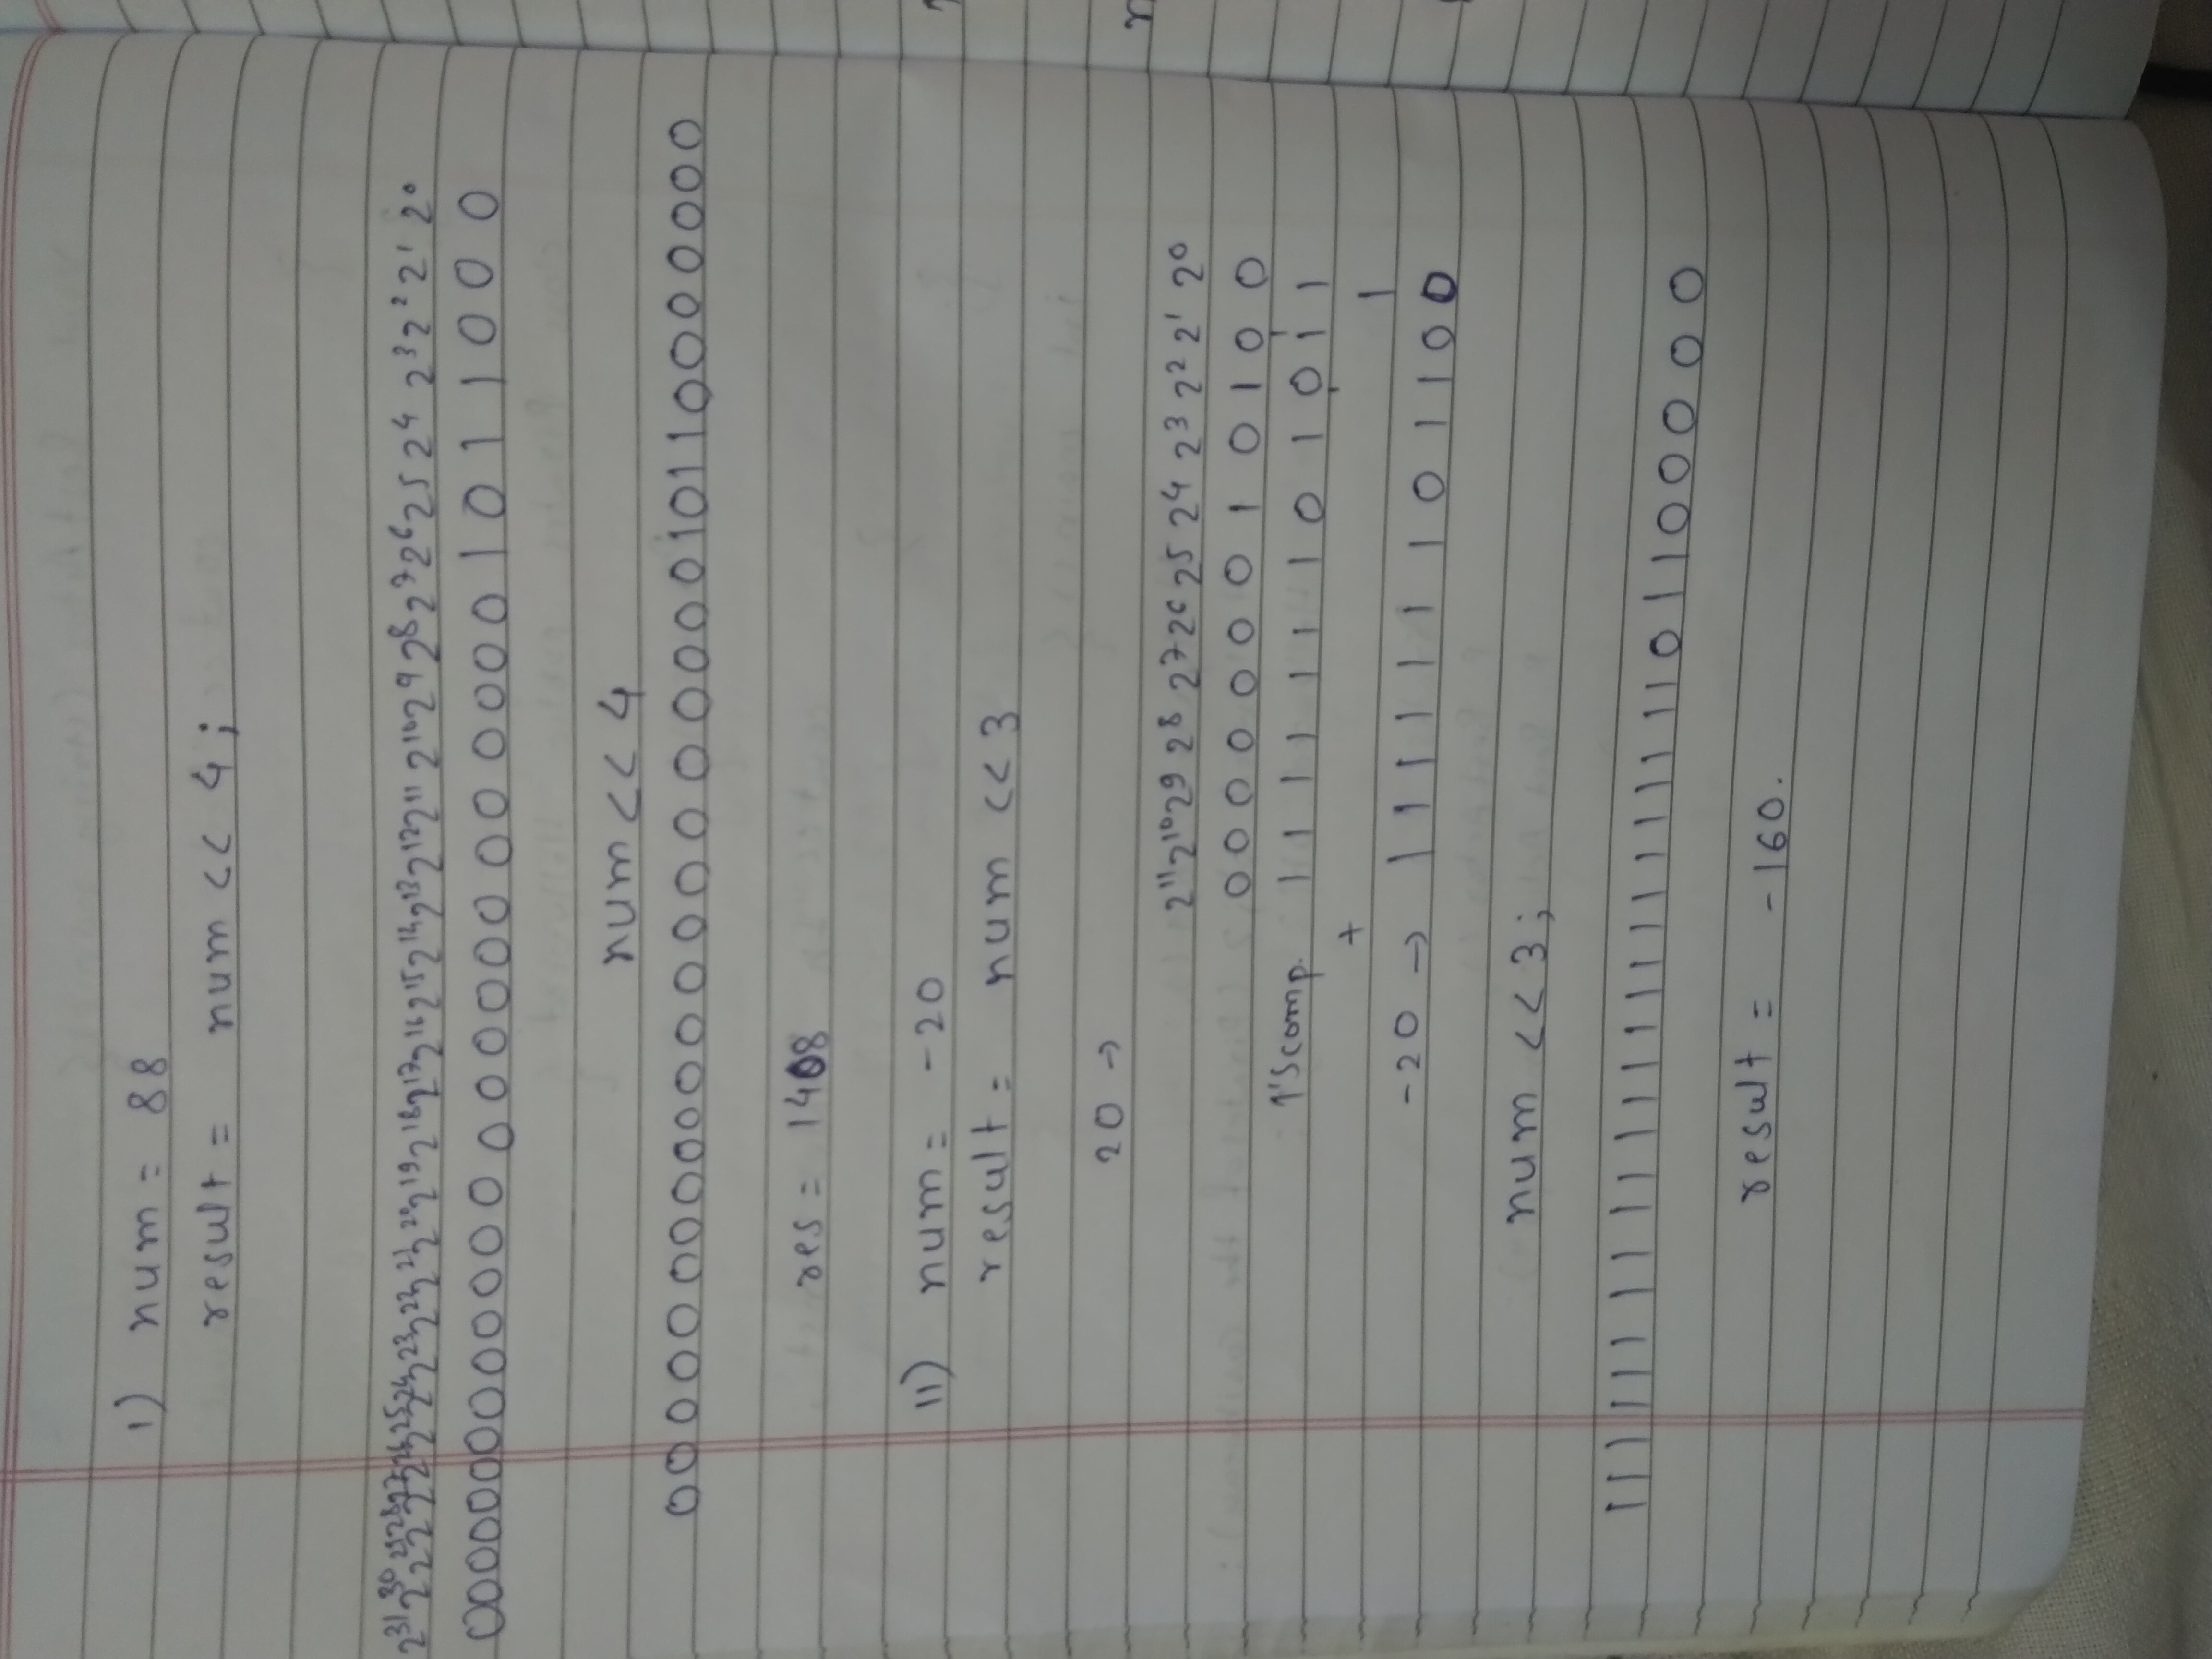 1) num = 88
result = num << 4;
2^31 2^30 2^29 2^28 2^27 2^26 2^25 2^24 2^23 2^22 2^21 2^20 2^19 2^18 2^17 2^16 2^15 2^14 2^13 2^12 2^11 2^10 2^9 2^8 2^7 2^6 2^5 2^4 2^3 2^2 2^1 2^0
0 0 0 0 0 0 0 0 0 0 0 0 0 0 0 0 0 0 0 0 0 0 0 0 0 1 0 1 1 0 0 0
num << 4
0 0 0 0 0 0 0 0 0 0 0 0 0 0 0 0 0 0 0 0 0 1 0 1 1 0 0 0 0 0 0 0
res = 1408
11) num = -20
result = num << 3
20 →
2^11 2^10 2^9 2^8 2^7 2^6 2^5 2^4 2^3 2^2 2^1 2^0
0 0 0 0 0 0 0 1 0 1 0 0
1's comp. 1 1 1 1 1 1 1 0 1 0 1 1
+ 1
-20 → 1 1 1 1 1 1 1 0 1 1 0 0
num << 3;
1 1 1 1 1 1 1 1 1 1 1 1 1 1 1 1 1 1 1 1 1 1 1 1 0 1 1 0 0 0 0 0
result = -160.